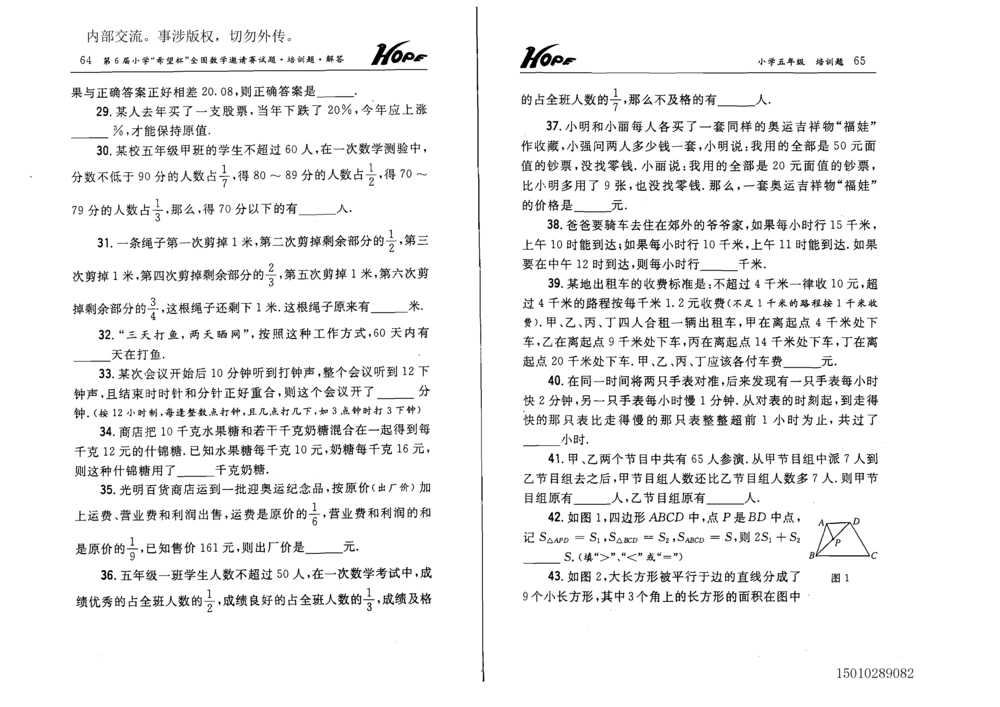 内部交流。事涉版权，切勿外传。
64 第6届小学“希望杯”全国数学邀请赛试题·培训题·解答 HOPE
果与正确答案正好相差 20.08,则正确答案是______.
29. 某人去年买了一支股票.当年下跌了 20%,今年应上涨
______%,才能保持原值.
30. 某校五年级甲班的学生不超过 60 人,在一次数学测验中,
分数不低于 90 分的人数占1/7,得 80～89 分的人数占1/2,得 70～
79 分的人数占1/3.那么,得 70 分以下的有______人.
31. 一条绳子第一次剪掉 1 米,第二次剪掉剩余部分的1/2,第三
次剪掉 1 米,第四次剪掉剩余部分的2/3,第五次剪掉 1 米,第六次剪
掉剩余部分的3/4,这根绳子还剩下 1 米.这根绳子原来有______米.
32. “三天打鱼,两天晒网”,按照这种工作方式,60 天内有
______天在打鱼.
33. 某次会议开始后 10 分钟听到打钟声,整个会议听到 12 下
钟声,且结束时时针和分针正好重合,则这个会议开了______分
钟.(按 12 小时制,每逢整数点打钟,且几点打几下,如 3 点钟时打 3 下钟)
34. 商店把 10 千克水果糖和若干千克奶糖混合在一起得到每
千克 12 元的什锦糖.已知水果糖每千克 10 元,奶糖每千克 16 元,
则这种什锦糖用了______千克奶糖.
35. 光明百货商店运到一批迎奥运纪念品,按原价(出厂价)加
上运费、营业费和利润出售,运费是原价的1/6,营业费和利润的和
是原价的1/9,已知售价 161 元,则出厂价是______元.
36. 五年级一班学生人数不超过 50 人,在一次数学考试中,成
绩优秀的占全班人数的1/2,成绩良好的占全班人数的1/3,成绩及格
HOPE 小学五年级 培训题 65
的占全班人数的1/7,那么不及格的有______人.
37. 小明和小丽每人各买了一套同样的奥运吉祥物“福娃”
作收藏,小强问两人多少钱一套,小明说:我用的全部是 50 元面
值的钞票,没找零钱.小丽说:我用的全部是 20 元面值的钞票,
比小明多用了 9 张,也没找零钱.那么,一套奥运吉祥物“福娃”
的价格是______元.
38. 爸爸要骑车去住在郊外的爷爷家,如果每小时行 15 千米,
上午 10 时能到达;如果每小时行 10 千米,上午 11 时能到达.如果
要在中午 12 时到达,则每小时行______千米.
39. 某地出租车的收费标准是:不超过 4 千米一律收 10 元,超
过 4 千米的路程按每千米 1.2 元收费(不足 1 千米的路程按 1 千米收
费).甲、乙、丙、丁四人合租一辆出租车,甲在离起点 4 千米处下
车,乙在离起点 9 千米处下车,丙在离起点 14 千米处下车,丁在离
起点 20 千米处下车.甲、乙、丙、丁应该各付车费______元.
40. 在同一时间将两只手表对准,后来发现有一只手表每小时
快 2 分钟,另一只手表每小时慢 1 分钟.从对表的时刻起,到走得
快的那只表比走得慢的那只表整整超前 1 小时为止,共过了
______小时.
41. 甲、乙两个节目中共有 65 人参演.从甲节目组中派 7 人到
乙节目组去之后,甲节目组人数还比乙节目组人数多 7 人.则甲节
目组原有______人,乙节目组原有______人.
42. 如图 1,四边形 ABCD 中,点 P 是 BD 中点,
记 S△APD = S₁,S△BCD = S₂,SABCD = S,则 2S₁ + S₂
______ S.(填“>”、“<”或“=”)
A D P B C
图 1
43. 如图 2,大长方形被平行于边的直线分成了
9 个小长方形,其中 3 个角上的长方形的面积在图中
15010289082